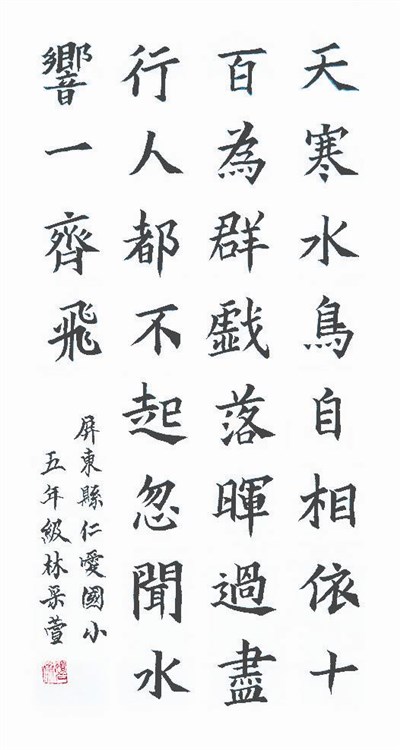 天寒水鳥自相依十
百為群戲落暉過盡
行人都不起忽聞水
響一齊飛
屏東縣仁愛國小
五年級林采萱